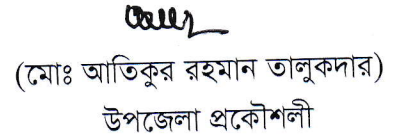 (মোঃ আতিকুর রহমান তালুকদার)
উপজেলা প্রকৌশলী